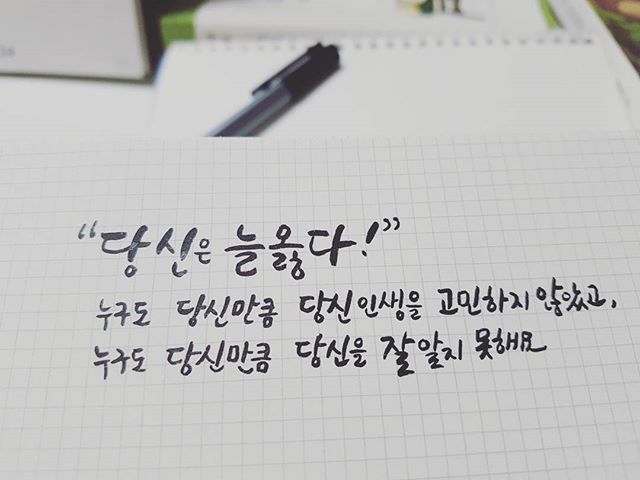 “당신은 늘 옳다!”
누구도 당신만큼 당신인생을 고민하지 않았고,
누구도 당신만큼 당신을 잘 알지 못해요